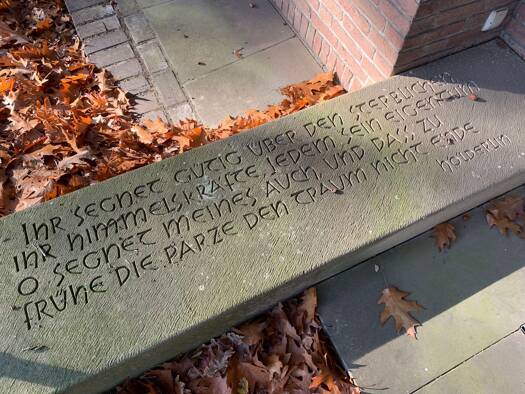 IHR SEGNET GÜTIG ÜBER DEN STERBLICHEN
IHR HIMMELSKRÄFTE JEDEM SEIN EIGENTUM
O SEGNET MEINES AUCH UND DASS ZU
FRÜHE DIE PARZE DEN TRAUM NICHT ENDE
HÖLDERLIN